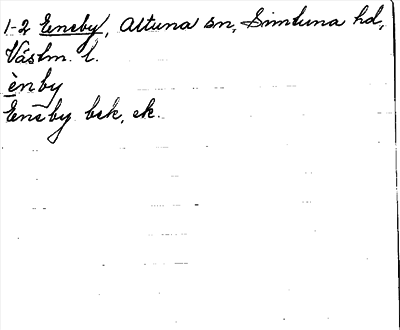 1-2 Eneby, Altuna sn, Simtuna hd,
Västm. l.
ènby
Eneby bsk, ek.